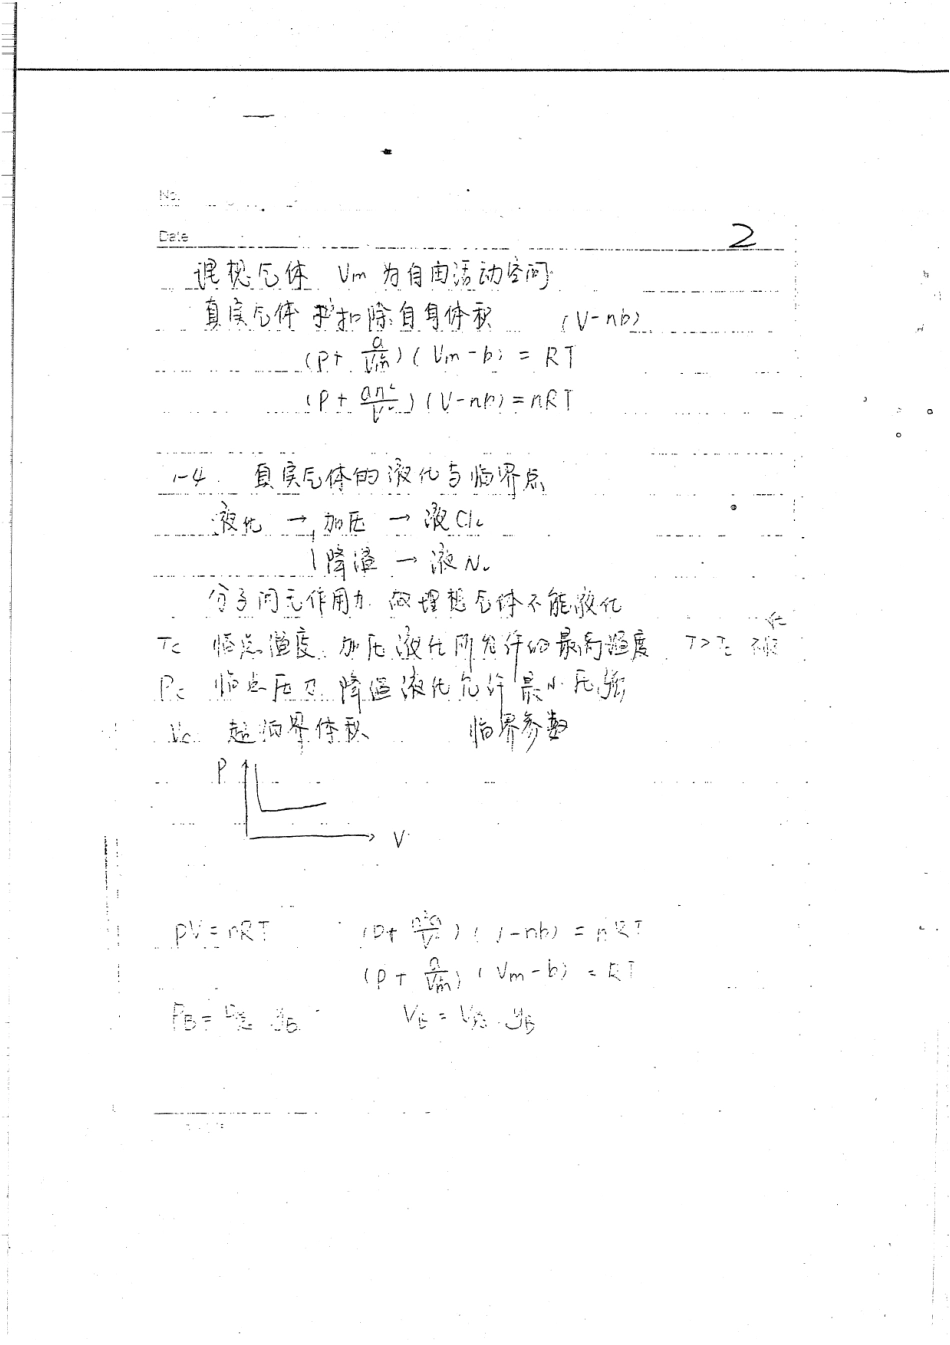 No.
Date
2
理想气体 Vm 为自由活动空间
真实气体 扣除自身体积 (V-nb)
(P+ a/Vm²)(Vm-b) = RT
(P+ an²/V²)(V-nb)=nRT
1-4. 真实气体的液化与临界点
液化 → 加压 → 液Cl₂
降温 → 液N₂
分子间无作用力 故理想气体不能液化
Tc 临点温度 加压液化所允许的最高温度 T>Tc
Pc 临点压力 降温液化允许最小压强
Vc 超临界体积 临界参数
P
V
pV=nRT (p+ n²a/V²)(V-nb) = nRT
(P+ a/Vm²)(Vm-b) = RT
PB=P总 yB VB=V总·yB